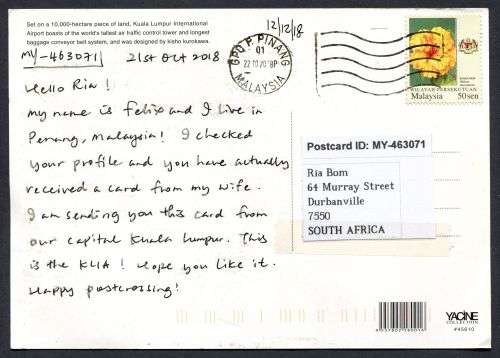 Set on a 10,000-hectare piece of land, Kuala Lumpur International
Airport boasts of the world's tallest air traffic control tower and longest
baggage conveyor belt system, and was designed by kisho kurokawa.
MY-463071 21st Oct 2018
Hello Ria!
my name is Felix and I live in
Penang, Malaysia! I checked
your profile and you have actually
received a card from my wife.
I am sending you this card from
our capital Kuala Lumpur. This
is the KLIA! Hope you like it.
Happy postcrossing!
12/12/18
GPO P. PINANG
01
22 10 2018P
MALAYSIA
WILAYAH PERSEKUTUAN
Malaysia 50sen
Postcard ID: MY-463071
Ria Bom
64 Murray Street
Durbanville
7550
SOUTH AFRICA
YACINE
COLLECTION
#45810